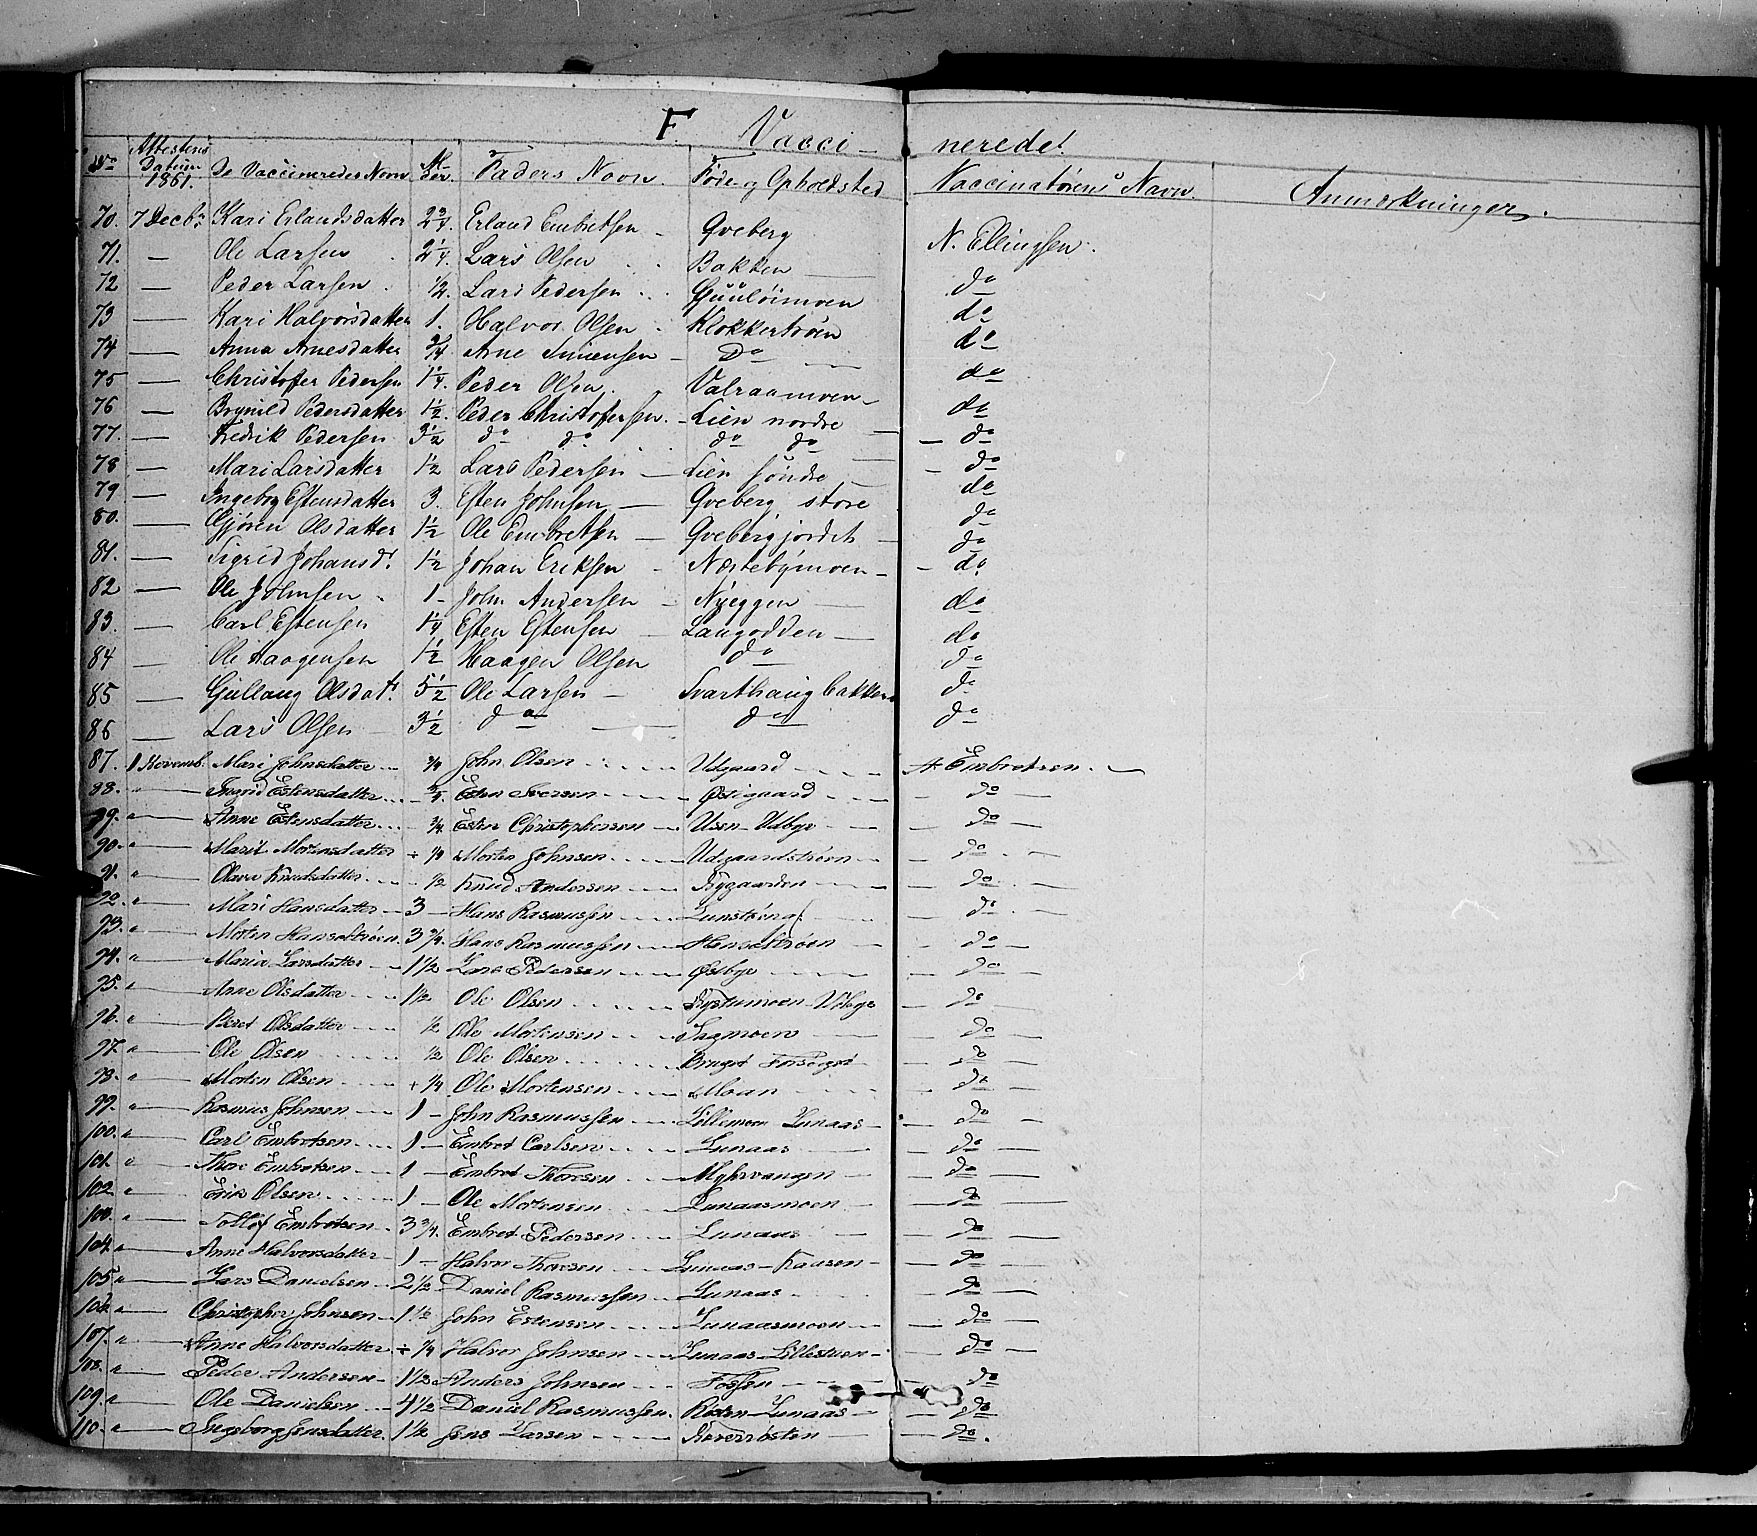 F. Vacci- neredet
No Attestens Datum 1861. De Vaccineredes Navn Al- der. Faders Navn. Føde- og Opholdsted Vaccinatørens Navn. Anmærkninger.
70. 7 Decbr Kari Erlandsdatter 2 3/4 Erland Embretsen - Qveberg N. Ellingsen.
71. — Ole Larsen 2 1/4 Lars Olsen Bakken — do
72 — Peder Larsen 1/2 Lars Pedersen do
73 — Kari Halvorsdatter 1. Halvor Olsen Klokkertrøen do
74 — Anna Arnesdatter 3/4 Arne Simensen - Do do
75 — Christoffer Pedersen 1 1/4 Peder Olsen Valraamoen do
76 — Brynild Pedersdatter 1 1/2 Peder Christofersen. - Lien nordre do
77. — Fredrik Pedersen 3 1/2 do do do do — do
78 — Mari Larsdatter 1 1/2 Lars Pedersen — Lien søndre - do
79 — Ingeborg Estensdatter 3. Esten Johnsen — Qveberg store do
80. — Gjøren Olsdatter 1 1/2 Ole Embretsen — Qvebergjordet - do
81. — Sigrid Johansdr. 1 1/2 Johan Eriksen - Næstebymoen - do
82 — Ole Johnsen 1 - John Andersen - Nyeggen — do
83. — Carl Estensen 1 1/4 Esten Estensen — Langodden — do
84 — Ole Haagensen 1 1/2 Haagen Olsen do do
85 — Gullaug Olsdatr 5 1/2 Ole Larsen - Svarthaugbakken do
86 — Lars Olsen 3 1/2 do — do do
87. 1 Novemb. Mari Johnsdatter 3/4 John Olsen Udgaard A Embretsen. —
88. " — Ingrid Estensdatter Esten Iversen Østigaard — do —
89. " — Anne Estensdatter 3/4 Esten Christophersen Usen-Udbye — do —
90. " — Marit Mortensdatter + 1/4 Morten Johnsen Udgaardstrøen — do —
91. " — Olava Knudsdatter 1/2 Knud Andersen Nygaarden — do —
92. " — Mari Hansdatter 3 — Hans Rasmussen — do —
93. " — Morten Hansetrøen 3 3/4 Hans Rasmussen Hansetrøen — do —
94. " — Maria Larsdatter 1 1/2 Lars Pedersen Østbye — do —
95. " — Anne Olsdatter 1 1/2 Ole Olsen Udbye — do —
96. " — Beret Olsdatter 1/2 Ole Mortensen Sagmoen — do —
97. " — Ole Olsen 1/2 Ole Olsen — do —
98. " — Morten Olsen + 1/4 Ole Mortensen Moan — do —
99. " — Rasmus Johnsen 1 — John Rasmussen Lillemoen Lunaas — do —
100. " — Carl Embretsen 1 — Embret Carlsen Lunaas — do —
101. " — Thore Embretsen 1 — Embret Thoresen Myhrvangen — do —
102. " — Erik Olsen 1 — Ole Mortensen Lunaasmoen — do —
103. " — Tollef Embretsen 3 3/4 Embret Pedersen Lunaas — do —
104. " — Anne Halvorsdatter 1 — Halvor Thoresen Lunaas - Kaasen — do —
105. " — Lars Danielsen 2 1/2 Daniel Rasmussen Lunaas — do —
106. " — Christopher Johnsen 1 1/2 John Estensen Lunaasmoen — do —
107. " — Anne Halvorsdatter + 1/4 Halvor Johnsen Lunaas-Lillestuen — do —
108. " — Peder Andersen 1 1/2 Anders Johnsen Fossen — do
109. " — Ole Danielsen 4 1/2 Daniel Rasmussen. Røsten-Lunaas — do
110. " — Ingeborg Jensdatter. 1 1/2 Jens Larsen — do.